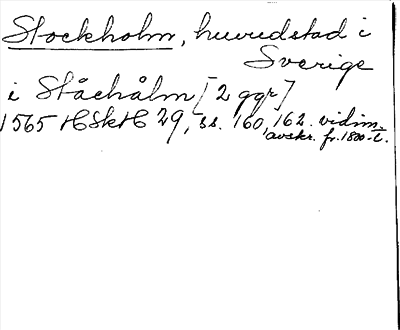 Stockholm, huvudstad i
Sverige
i Ståchålm [2 ggr]
1565 HSkH 29, ss. 160, 162. vidim.
avskr. fr. 1800-t.